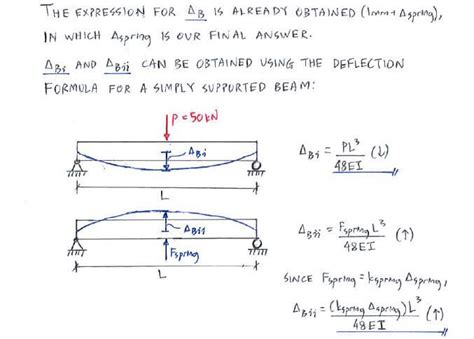 THE EXPRESSION FOR ΔB IS ALREADY OBTAINED (1mm + Δspring),
IN WHICH Δspring IS OUR FINAL ANSWER.
ΔBi AND ΔBii CAN BE OBTAINED USING THE DEFLECTION
FORMULA FOR A SIMPLY SUPPORTED BEAM:
P = 50kN
ΔBi
L
ΔBi = PL³/48EI (↓)
ΔBii
Fspring
L
ΔBii = Fspring L³/48EI (↑)
SINCE Fspring = kspring Δspring,
ΔBii = (kspring Δspring)L³/48EI (↑)